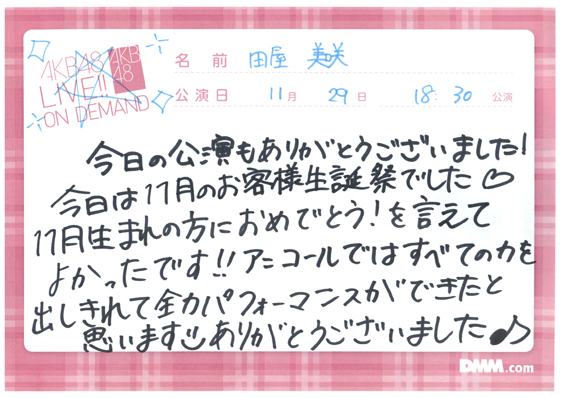 AKB48
LIVE!!
ON DEMAND
AKB
48
名前 田屋 美咲
公演日 11月 29日 18:30 公演
今日の公演もありがとうございました!
今日は11月のお客様生誕祭でした♡
11月生まれの方におめでとう!を言えて
よかったです!!アンコールではすべての力を
出しきれて全力パフォーマンスができたと
思います ありがとうございました♪
DMM.com